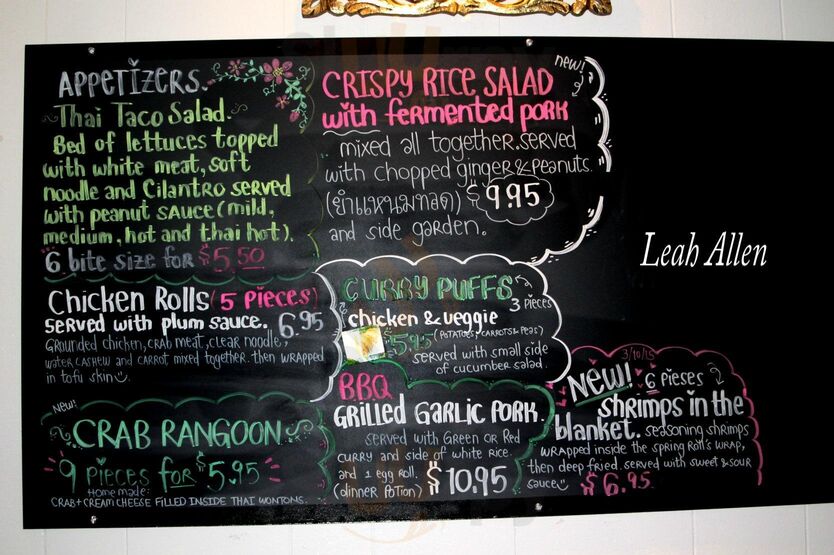 APPETIZERS.
Thai Taco Salad.
Bed of lettuces topped
with white meat, soft
noodle and Cilantro served
with peanut sauce (mild,
medium, hot and thai hot).
6 bite size for $5.50
new!
CRISPY RICE SALAD
with fermented pork
mixed all together. served
with chopped ginger & peanuts.
(ยำแหนมทอด) $9.95
and side garden.
Leah Allen
Chicken Rolls (5 Pieces)
served with plum sauce. 6.95
Grounded chicken, crab meat, clear noodle,
water cashew and carrot mixed together. then wrapped
in tofu skin
CURRY PUFFS
3 pieces
chicken & veggie
(Potatoes, carrots & peas)
$5.95
served with small side
of cucumber salad.
new!
CRAB RANGOON
9 pieces for $5.95
Home made:
CRAB + CREAM CHEESE FILLED INSIDE THAI WONTONS.
BBQ
Grilled Garlic Pork.
served with Green or Red
curry and side of white rice.
and 1 egg roll.
(dinner potion) $10.95
3/10/15
NEW! 6 Pieses
shrimps in the
blanket. seasoning shrimps
wrapped inside the spring roll's wrap,
then deep fried. served with sweet & sour
sauce $6.95